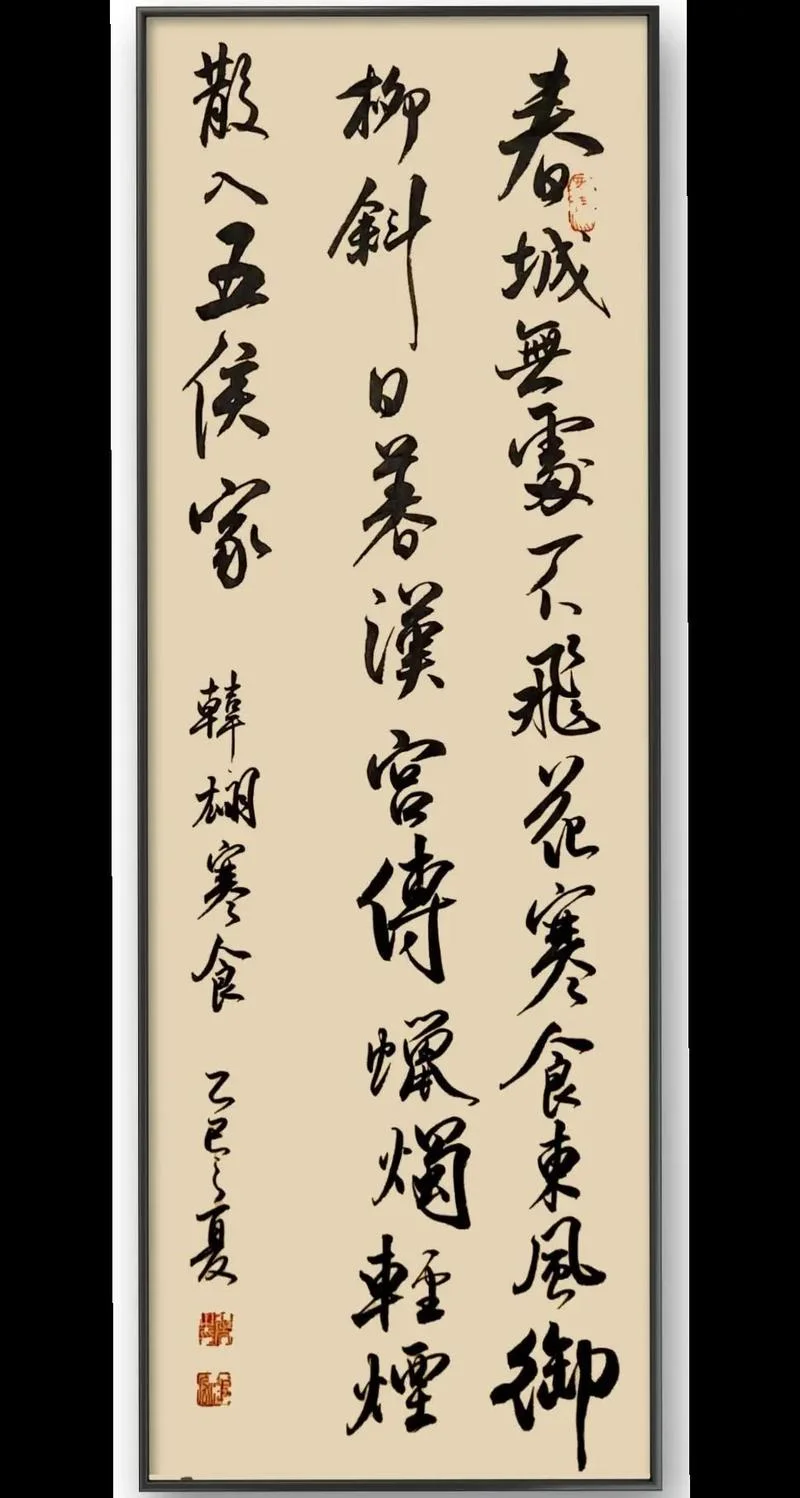 春城無處不飛花寒食東風御
柳斜日暮漢宮傳蠟燭輕煙
散入五侯家 韓翃寒食 乙巳之夏